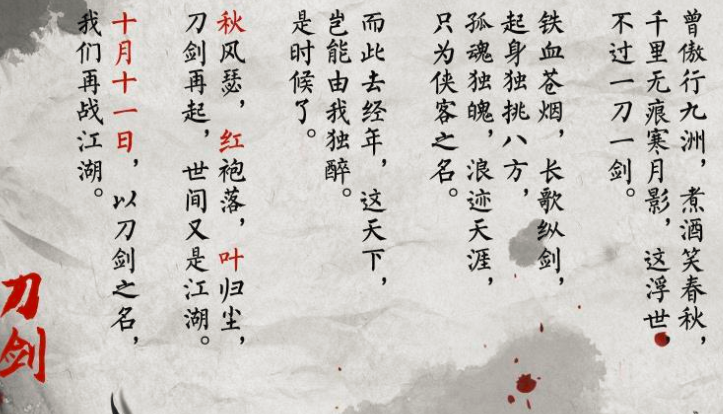 曾傲行九洲，煮酒笑春秋，
千里无痕寒月影，这浮世，
不过一刀一剑。
铁血苍烟，长歌纵剑，
起身独挑八方，
孤魂独魄，浪迹天涯，
只为侠客之名。
而此去经年，这天下，
岂能由我独醉。
是时候了。
秋风瑟，红袍落，叶归尘，
刀剑再起，世间又是江湖。
十月十一日，以刀剑之名，
我们再战江湖。
刀剑